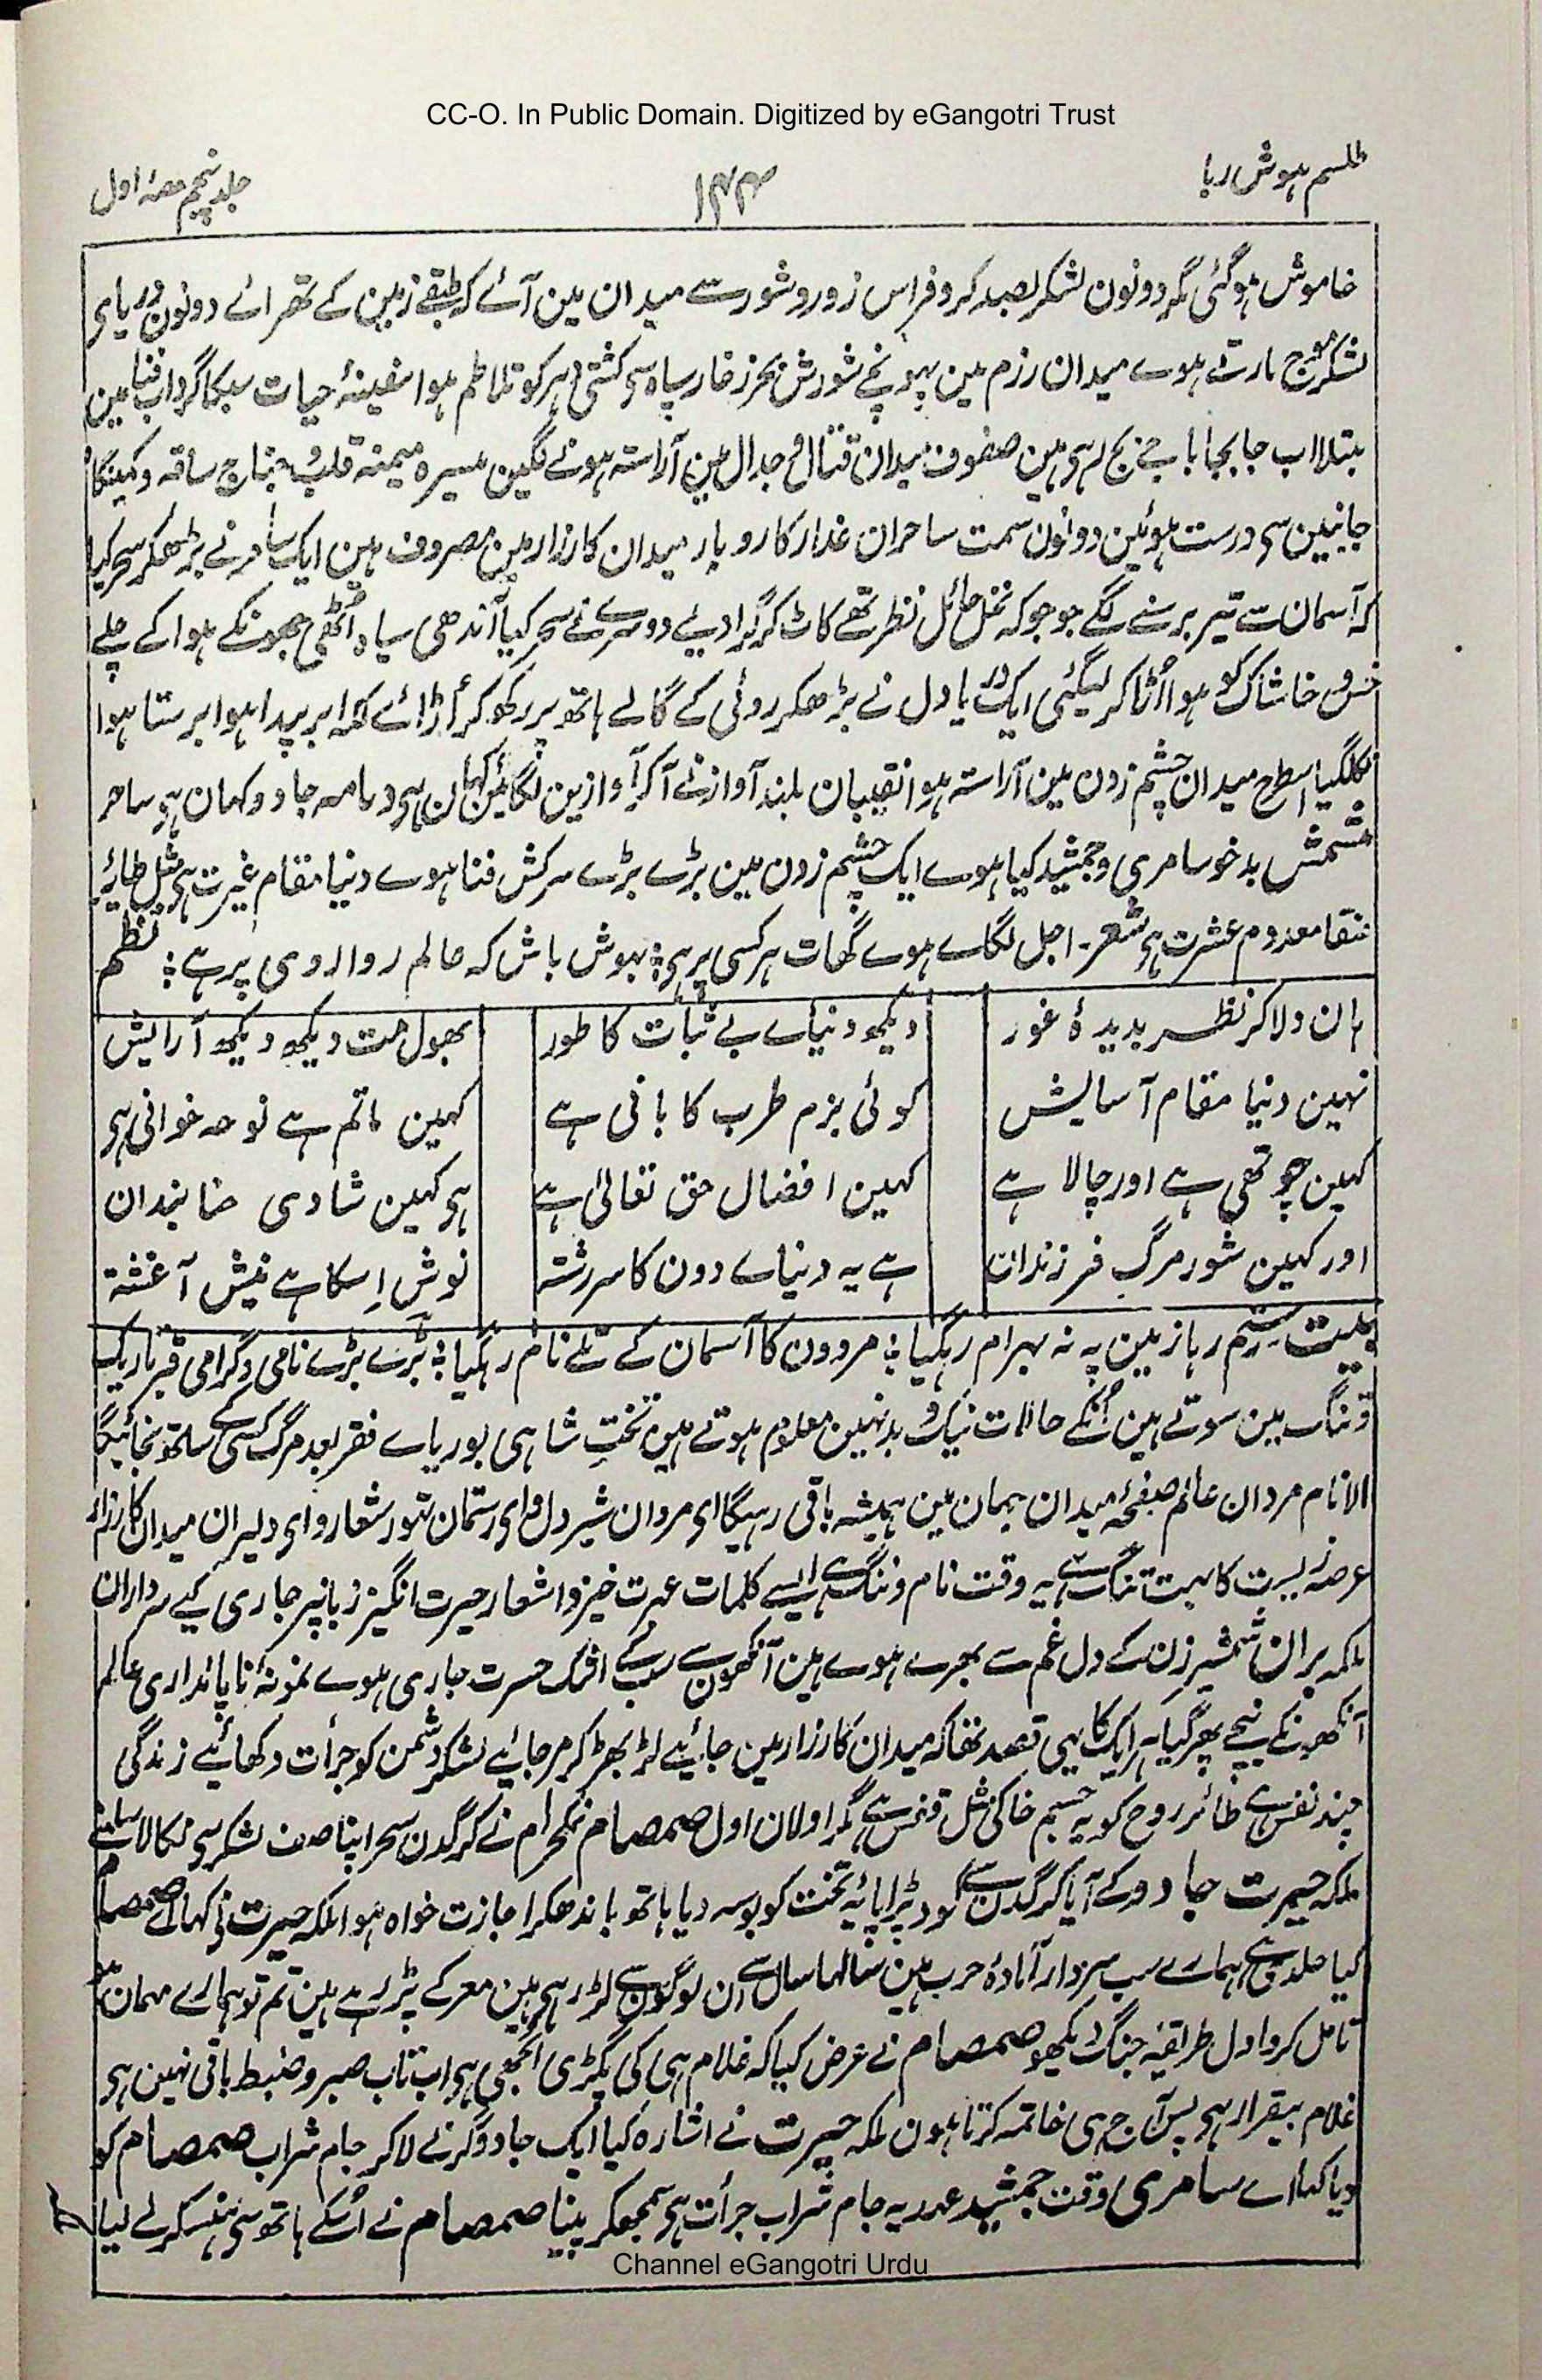 CC-O. In Public Domain. Digitized by eGangotri Trust
طلسم ہوش ربا
۱۴۴
جلد پنجم حصۂ اول
خاموش ہو گئی مگر دونون لشکر بصد کر و فر اس زور و شور سے میدان مین آئے کہ طبقے زمین کے تھرائے دونون دریای
لشکر موج مارتے ہوے میدان رزم مین پہونچے شورش بحر زخار سپاہ سی کشتی دہر کو تلاطم ہوا سفینۂ حیات سبکا گرداب فنا مین
مبتلا اب جابجا باجے بج رہی ہین صفوف میدان قتال و جدال مین آراستہ ہونے لگین میسرہ میمنہ قلب و جناح ساقہ و کمینگاہ
جانبین سی درست ہوئین دونون سمت ساحران غدار کاروبار میدان کارزار مین مصروف ہین ایک ساحر نے بڑھکر سحر کیا
کہ آسمان سے تیر برسنے لگے جو جو کہ نخل حائل نظر تھے کاٹ کر گرا دیے دوسرے نے سحر کیا آندھی سیاہ اُٹھی جھونکے ہوا کے چلے
خس و خاشاک کو ہوا اُڑا کر لیگئی ایک دریا دل نے بڑھکر روئی کے گالے ہاتھ پر رکھ کر اُڑائے لکہ ابر پیدا ہوا برستا ہوا
نکلگیا اسطرح میدان چشم زدن مین آراستہ ہوا نقیبان بلند آواز نے آکر آوازین لگائین کہان ہی دمامہ جادو کہان ہی ساحر
شمش بدخو سامری و جمشید کیا ہوے ایک چشم زدن مین بڑے بڑے سرکش فنا ہوے دنیا مقام عبرت ہی مثل طائر
عنقا معدوم عشرت ہی شعر۔ اجل لگاے ہوے گھات ہر کسی پر ہی ؛ بہوش باش کہ عالم رواروی پر ہے ؛ نظم
ہان دلا کر نظر بدیدۂ غور
دیکھ دنیاے بے ثبات کا طور
بھول مت دیکھ دیکھ آرایش
نہین دنیا مقام آسایش
کوئی بزم طرب کا بانی ہے
کہین ماتم ہے نوحہ خوانی ہی
کہین چوتھی ہے اور چالا ہے
کہین افضال حق تعالیٰ ہے
ہی کہین شادی حنا بندان
اور کہین شور مرگ فرزندان
ہے یہ دنیاے دون کا سررشتہ
نوش اِسکا ہے نیش آغشتہ
بیت رستم رہا زمین پہ نہ بہرام رہگیا ؛ مردون کا آسمان کے تلے نام رہگیا ؛ بڑے بڑے نامی و گرامی قبر تاریک
و تنگ مین سوتے ہین اُنکے حالات نیک و بد نہین معلوم ہوتے ہین تخت شاہی بوریاے فقر بعد مرگ کسی کے ساتھ نجائیگا
الا نام مردان عالم صفحۂ میدان جہان مین ہمیشہ باقی رہیگا ای مردان شیر دل و ای رستمان تہور شعار و ای دلیران میدان کارزار
عرصہ زیست کا بہت تنگ ہے یہ وقت نام و ننگ ہے ایسے کلمات عبرت خیز و اشعار حیرت انگیز زبانپر جاری کیے سرداران
ملکہ بران شمشیر زن کے دل غم سے بھرے ہوے ہین آنکھون سے سبکے اشک حسرت جاری ہوے نمونۂ ناپائداری عالم
آنکھونکے نیچے پھر گیا ہر ایک کا یہی قصد تھا کہ میدان کارزار مین جائیے لڑ بھڑ کر مر جائیے لشکر دشمن کو جرأت دکھائیے زندگی
چند نفس ہے طائر روح کو یہ جسم خاکی مثل قفس ہے مگر اولان اول صمصام نمکحرام نے کرگدن سحر اپنا صف لشکر سی نکالا سامنے
ملکہ حیرت جادو کے آیا کرگدن سے کود پڑا پایۂ تخت کو بوسہ دیا ہاتھ باندھکر اجازت خواہ ہوا ملکہ حیرت نی کہا اے صمصام
کیا جلدی ہے ہمارے سب سردار آمادۂ حرب ہین سالہا سال سے ان لوگون سے لڑ رہی ہین معرکے پڑ رہے ہین تم تو ہمارے مہمان ہو
تامل کرو اول طریقۂ جنگ دیکھو صمصام نے عرض کیا کہ غلام ہی کی پگڑی اُلجھی ہی اب تاب صبر و ضبط باقی نہین ہی
غلام بیقرار ہی بس آج ہی خاتمہ کرتا ہون ملکہ حیرت نے اشارہ کیا ایک جادوگرنے لاکر جام شراب صمصام کو
دیا کہا اے سامری وقت جمشید عہد یہ جام شراب جرأت ہی سمجھکر پینا صمصام نے اُسکے ہاتھ سی ہنسکر لے لیا
Channel eGangotri Urdu